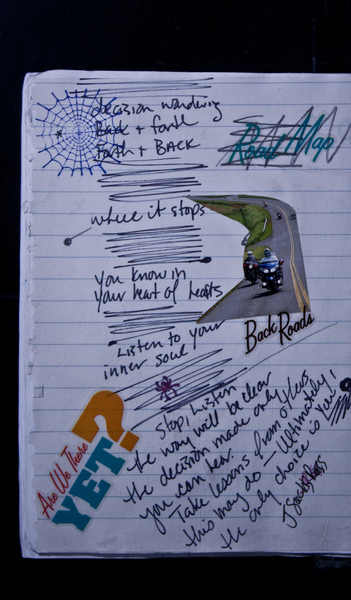 decision wandering
Back + forth
Forth + BACK
Road Map
where it stops
you know in
your heart of hearts
Back Roads
Listen to your
inner soul
Are We There
YET?
Stop, Listen
the way will be clear
the decision made only
you can hear.
Take lessons from others
this may do — Ultimately,
the only choice is You!